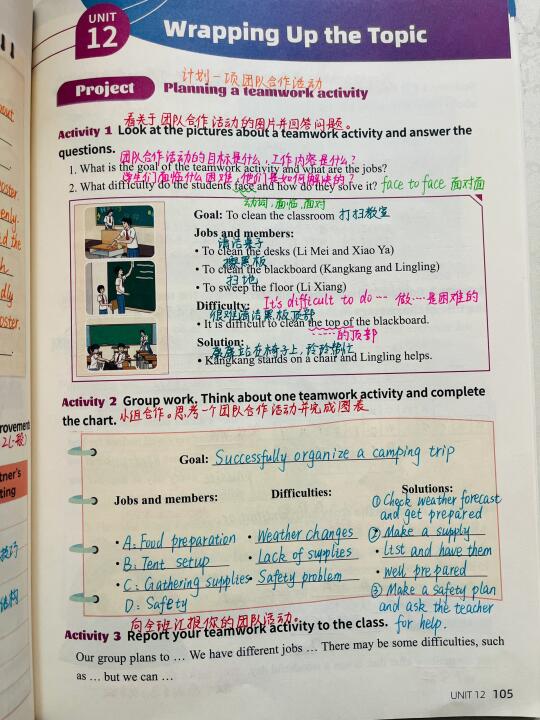 UNIT
12
Wrapping Up the Topic
计划一项团队合作活动
Project Planning a teamwork activity
看关于团队合作活动的图片并回答问题。
Activity 1 Look at the pictures about a teamwork activity and answer the
questions.
团队合作活动的目标是什么,工作内容是什么?
1. What is the goal of the teamwork activity and what are the jobs?
学生们面临什么困难,他们是如何解决的?
2. What difficulty do the students face and how do they solve it? face to face 面对面
动词,面临,面对
Goal: To clean the classroom 打扫教室
Jobs and members:
清洁桌子
• To clean the desks (Li Mei and Xiao Ya)
擦黑板
• To clean the blackboard (Kangkang and Lingling)
扫地
• To sweep the floor (Li Xiang)
Difficulty: It's difficult to do … 做…是困难的
很难清洁黑板顶部
• It is difficult to clean the top of the blackboard.
…的顶部
Solution:
康康站在椅子上,玲玲帮忙
• Kangkang stands on a chair and Lingling helps.
Activity 2 Group work. Think about one teamwork activity and complete
the chart. 小组合作。思考一个团队合作活动并完成图表
Goal: Successfully organize a camping trip
Jobs and members: Difficulties: Solutions:
① Check weather forecast
and get prepared
• A: Food preparation • Weather changes ② Make a supply
• B: Tent setup • Lack of supplies • list and have them
• C: Gathering supplies • Safety problem • well prepared
D: Safety ③ Make a safety plan
and ask the teacher
for help.
向全班汇报你的团队活动。
Activity 3 Report your teamwork activity to the class.
Our group plans to … We have different jobs … There may be some difficulties, such
as … but we can …
UNIT 12 105